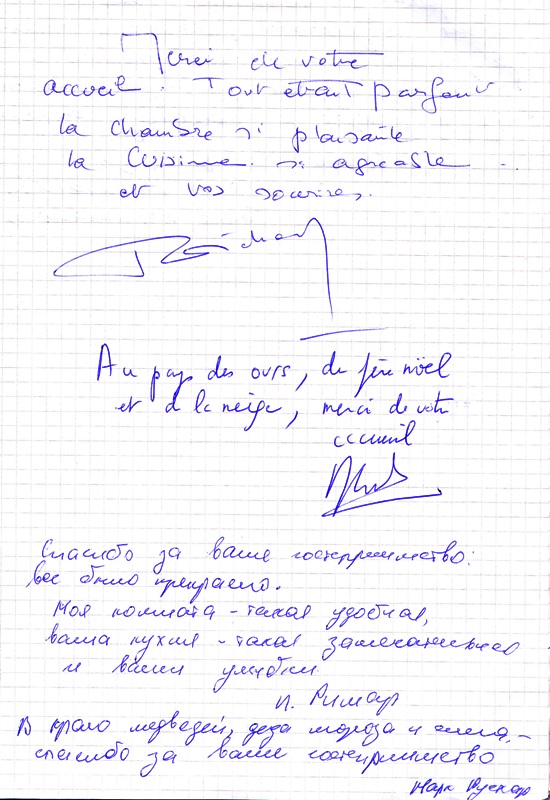 Merci de votre
accueil. Tout était parfait
la chambre si plaisante
la cuisine si agréable
et vos sourires.
Au pays des ours, du père noël
et d la neige, merci de votre
accueil
Спасибо за ваше гостеприимство:
все было прекрасно.
Моя комната - такая удобная,
ваша кухня - такая замечательная
и ваши улыбки
И. Ришар
В краю медведей, деда мороза и снега, -
спасибо за ваше гостеприимство
Марк